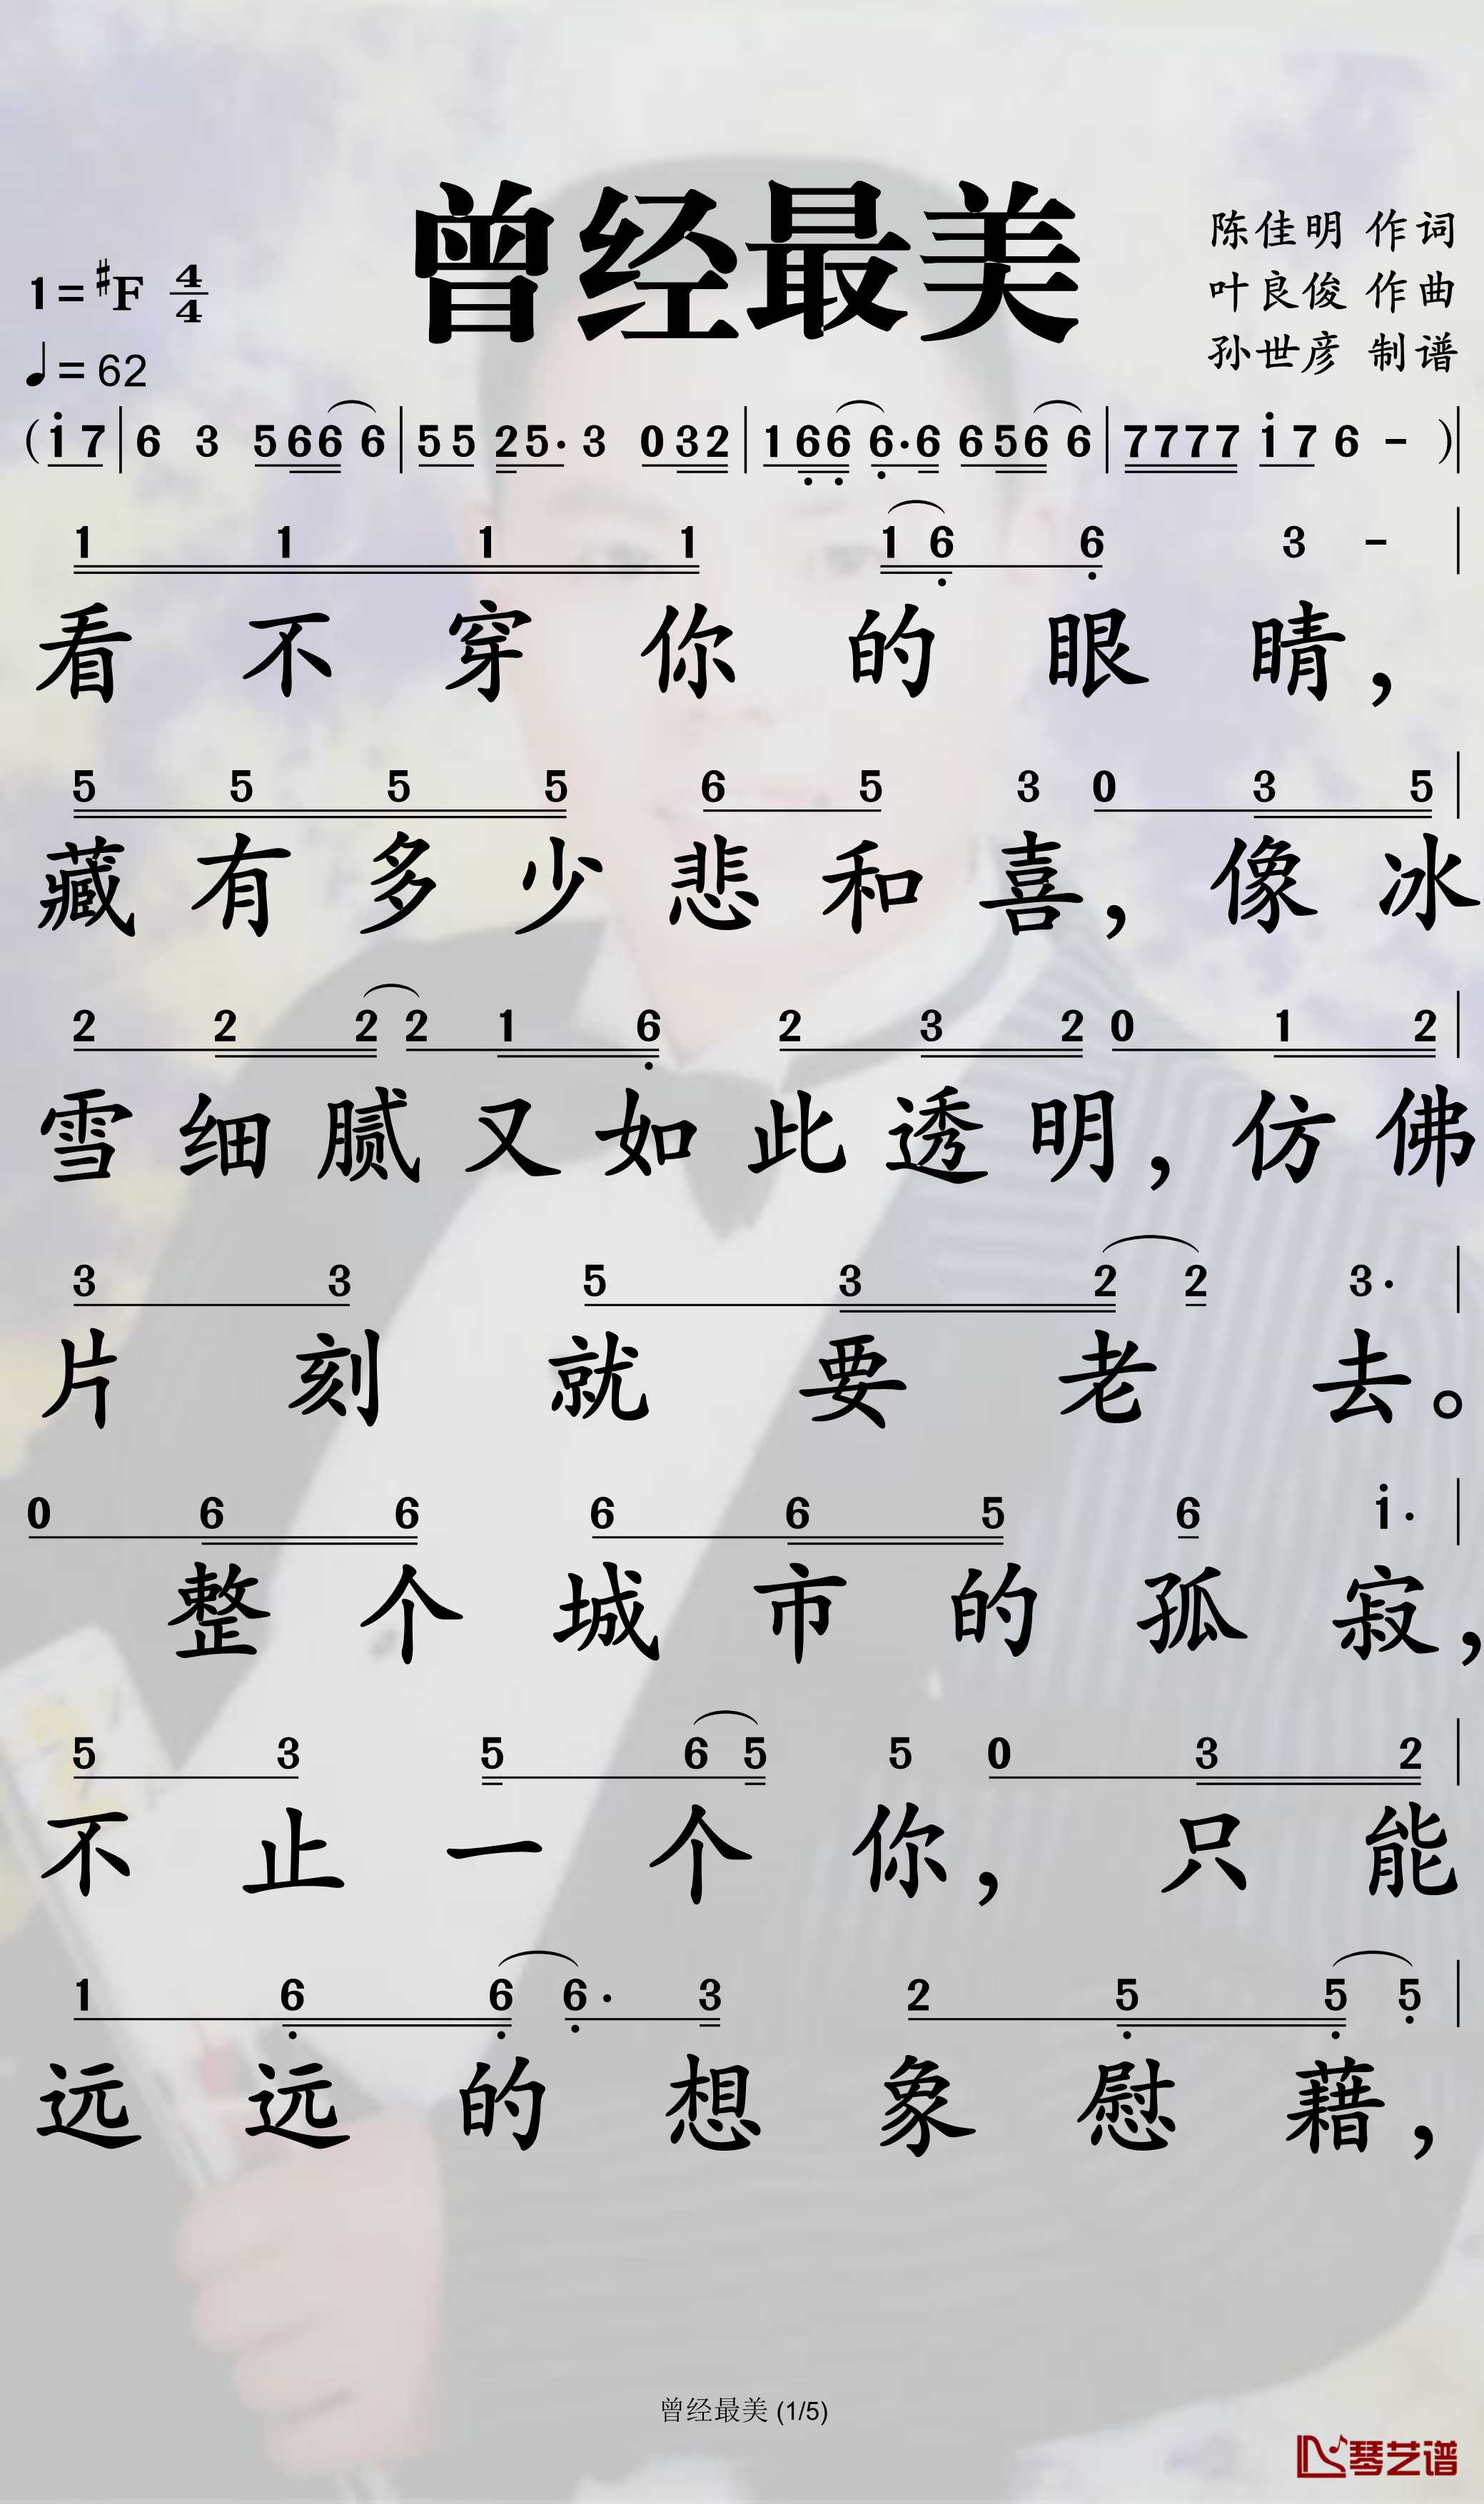 曾经最美
陈佳明 作词
叶良俊 作曲
孙世彦 制谱
1=#F 4/4
♩=62
(i 7 | 6 3 5 6 6 6 | 5 5 2 5· 3 0 3 2 | 1 6 6 6· 6 6 5 6 6 | 7 7 7 7 i 7 6 - )|
1 1 1 1 1 6 6 3 - |
看不穿你的眼睛，
5 5 5 5 6 5 3 0 3 5 |
藏有多少悲和喜，像冰
2 2 2 2 1 6 2 3 2 0 1 2 |
雪细腻又如此透明，仿佛
3 3 5 3 2 2 3· |
片刻就要老去。
0 6 6 6 6 5 6 i· |
整个城市的孤寂，
5 3 5 6 5 5 0 3 2 |
不止一个你，只能
1 6 6 6· 3 2 5 5 5 |
远远的想象慰藉，
曾经最美 (1/5)
琴艺谱